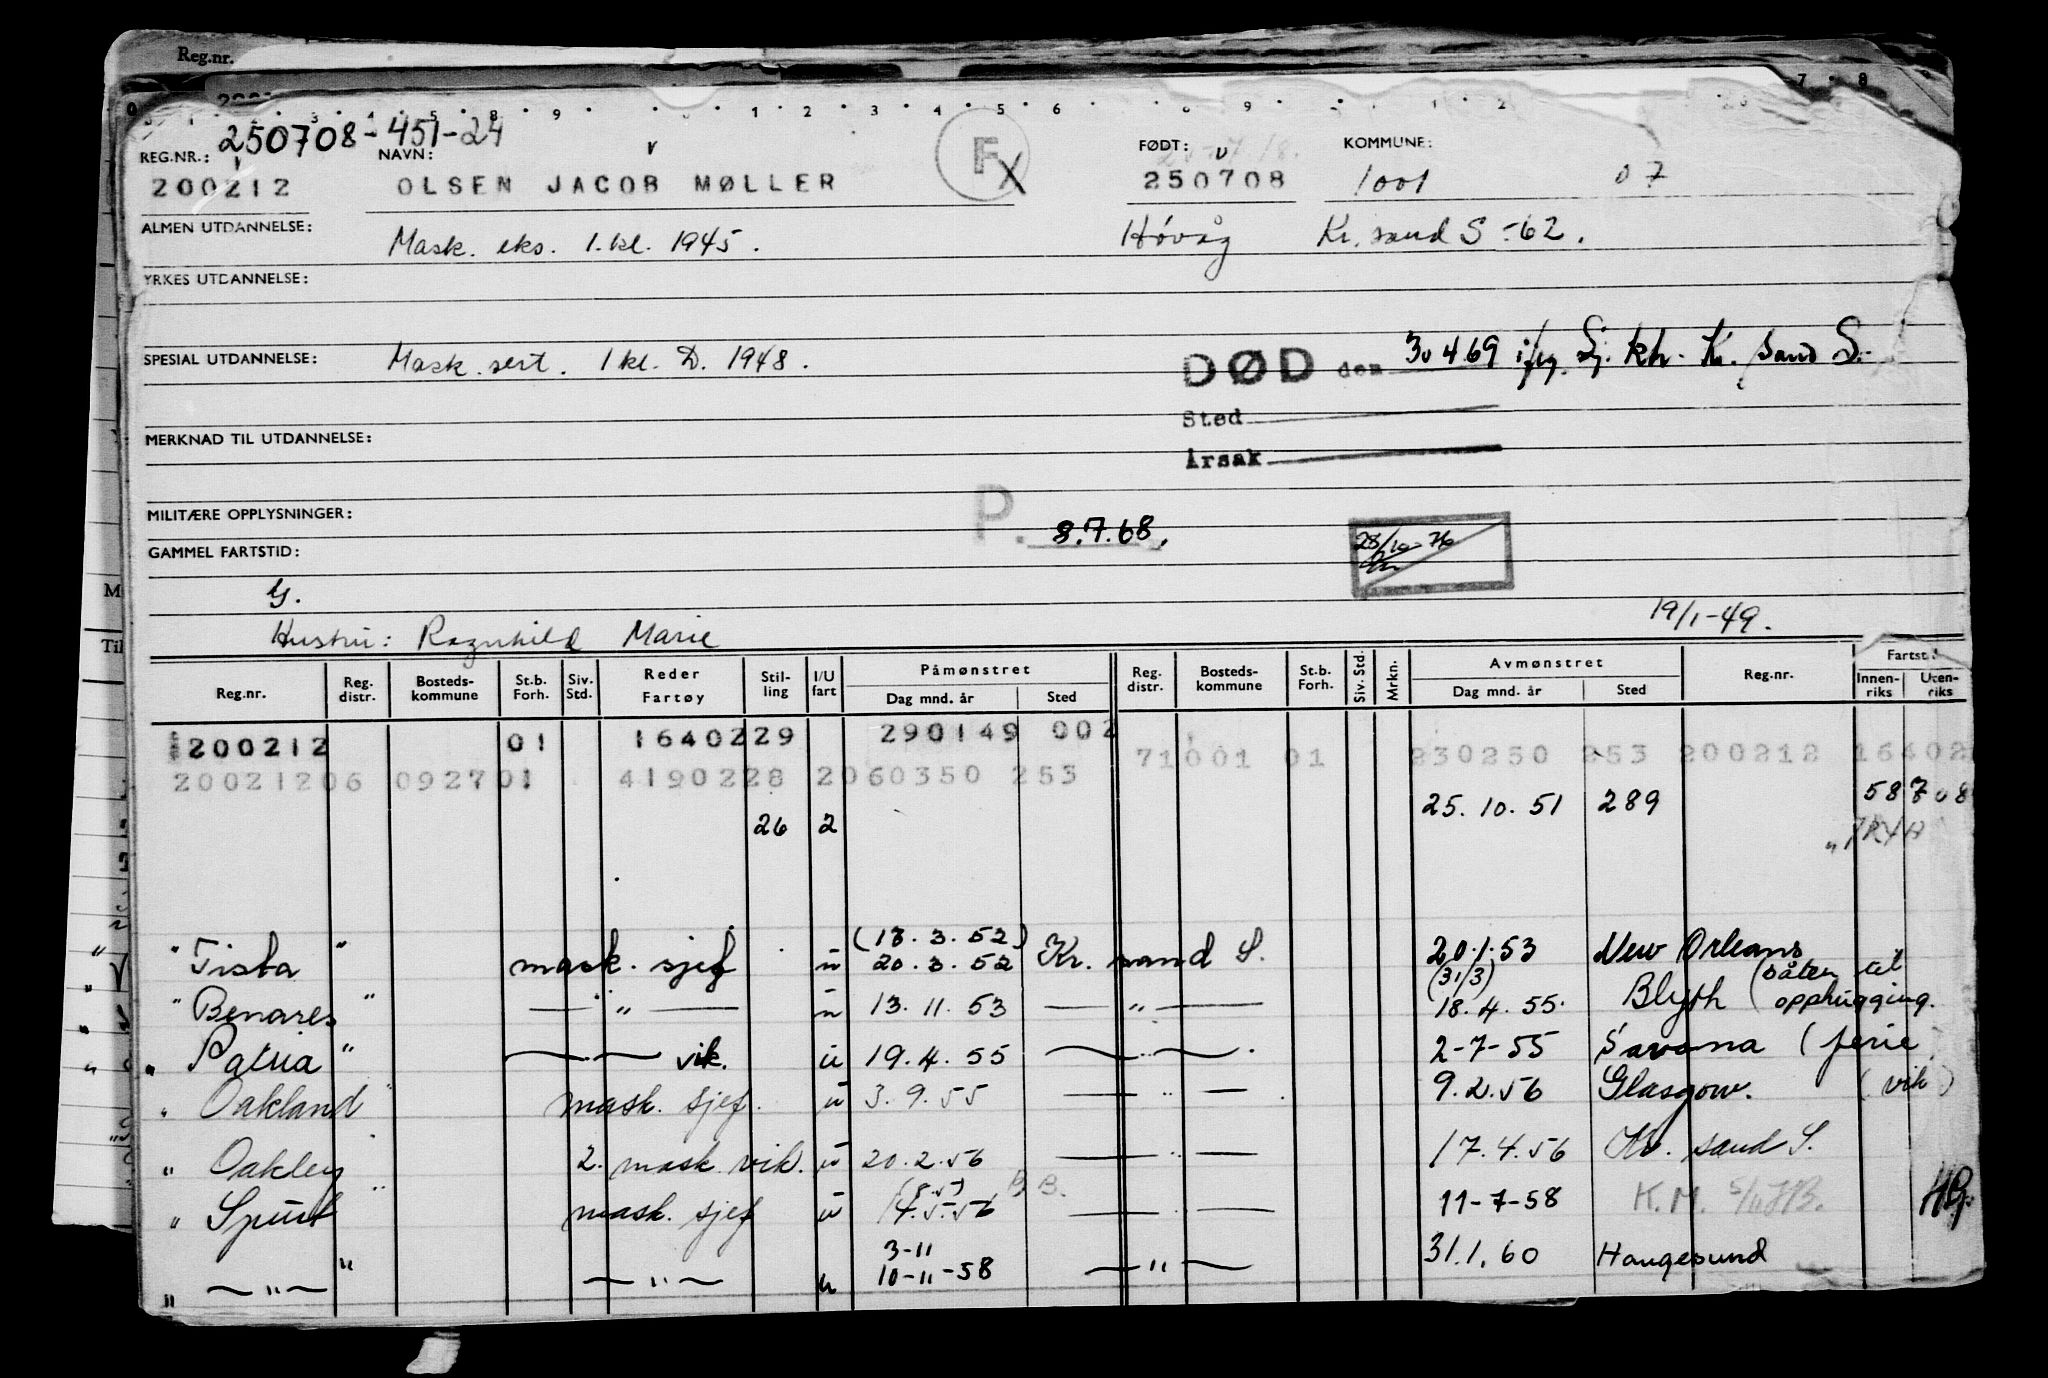 Reg.nr.
250708-451-24
REG.NR.: NAVN: FØDT: KOMMUNE:
200212 OLSEN JACOB MØLLER F 250708 1001 07
ALMEN UTDANNELSE: Mask. eks. 1. kl. 1945. Høvåg Kr. sand S -62.
YRKES UTDANNELSE:
SPESIAL UTDANNELSE: Mask. sert. 1 kl. D. 1948. DØD den 30 4 69 iflg. Sj. ktr. Kr. sand S.
Sted
MERKNAD TIL UTDANNELSE: Årsak
MILITÆRE OPPLYSNINGER: P. 8.7.68.
GAMMEL FARTSTID: 28/10-76
G. 19/1-49.
Hustru: Ragnhild Marie
Reg.nr. Reg. distr. Bosteds-kommune St.b. Forh. Siv. Std. Reder Fartøy Stil-ling I/U fart Påmønstret Dag mnd. år Sted Reg. distr. Bosteds-kommune St.b. Forh. Siv. Std. Mrkn. Avmønstret Dag mnd. år Sted Reg.nr. Fartst Innen-riks Uten-riks
200212 01 1640229 290149 002 71001 01 230250 253 200212 16402
20021206 092701 4190228 2060350 253
26 2 25.10.51 289 58
" Tista " mask. sjef u (13.3.52) 20.3.52 Kr. sand S. 20.1.53 New Orleans
" Benares " — " — u 13.11.53 — " — (31/3) 18.4.55 Blyth (båten til opphugging.
" Patria " — " — vik. u 19.4.55 — " — 2-7-55 Savona (ferie
" Oakland " mask. sjef. u 3.9.55 — " — 9.2.56 Glasgow. (vik)
" Oakley " 2. mask. vik. u 20.2.56 — " — 17.4.56 Kr. sand S.
" Spurt " mask. sjef u 14.5.56 B.B. — " — 11-7-58 K.M. HB.
" — " — " — " — u 3-11 10-11-58 — " — 31.1.60 Haugesund